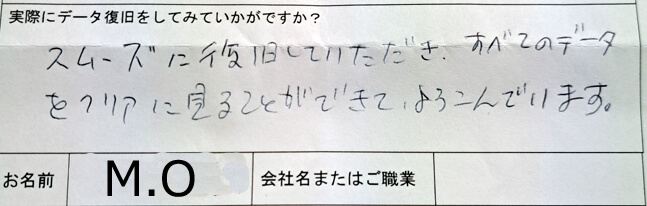 実際にデータ復旧をしてみていかがですか？
スムーズに復旧していただき、すべてのデータ
をクリアに見ることができて、よろこんでいます。
お名前 M.O 会社名またはご職業